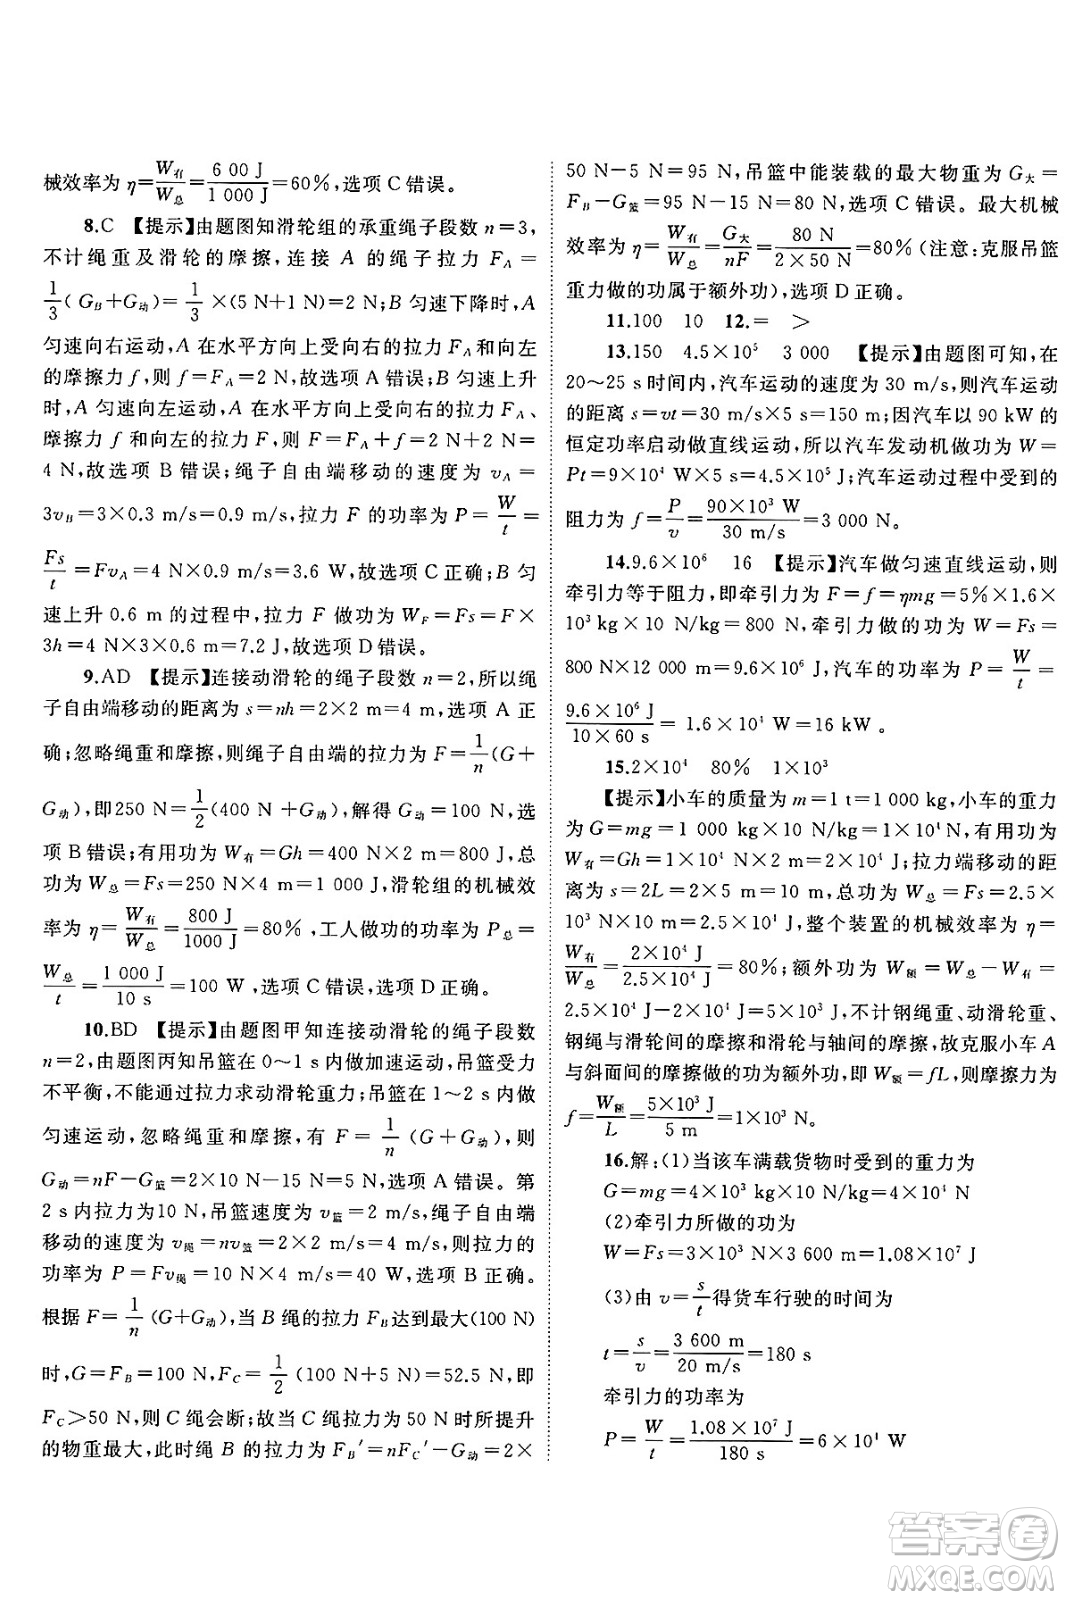 机械效率为 η=W有/W总=600 J/1 000 J=60%,选项 C 错误。
8.C 【提示】由题图知滑轮组的承重绳子段数 n=3,
不计绳重及滑轮的摩擦,连接 A 的绳子拉力 F_A=
1/3(G_B+G动)=1/3×(5 N+1 N)=2 N;B 匀速下降时,A
匀速向右运动,A 在水平方向上受向右的拉力 F_A 和向左
的摩擦力 f,f=F_A=2 N,故选项 A 错误;B 匀速上升
时,A 匀速向左运动,A 受到水平向右的拉力 F_A、
摩擦力 f 和向左的拉力 F,则 F=F_A+f=2 N+2 N=
4 N,故选项 B 错误;绳子自由端移动的速度为 v_A=
3v_B=3×0.3 m/s=0.9 m/s,拉力 F 的功率为 P=W/t=
Fs/t=Fv_A=4 N×0.9 m/s=3.6 W,故选项 C 正确;B 匀
速上升 0.6 m 的过程中,拉力 F 做功为 W_F=Fs=F×
3h=4 N×3×0.6 m=7.2 J,故选项 D 错误。
9.AD 【提示】连接动滑轮的绳子段数 n=2,所以绳
子自由端移动的距离为 s=nh=2×2 m=4 m,选项 A 正
确;忽略绳重和摩擦,则绳子自由端的拉力为 F=1/n(G+
G动),即250 N=1/2(400 N+G动),解得 G动=100 N,选
项 B 错误;有用功为 W有=Gh=400 N×2 m=800 J,总
功为 W总=Fs=250 N×4 m=1 000 J,滑轮组的机械效
率为 η=W有/W总=800 J/1000 J=80%,工人做功的功率为 P总=
W总/t=1 000 J/10 s=100 W,选项 C 错误,选项 D 正确。
10.BD 【提示】由题图甲知连接动滑轮的绳子段数
n=2,由题图丙知吊篮在 0~1 s 内做加速运动,吊篮受力
不平衡,不能通过拉力求动滑轮重力;吊篮在 1~2 s 内做
匀速运动,忽略绳重和摩擦,有 F=1/n(G+G动),则
G动=nF-G篮=2×10 N-15 N=5 N,选项 A 错误。第
2 s 内拉力为10 N,吊篮速度为 v篮=2 m/s,绳子自由端
移动的速度为 v绳=nv篮=2×2 m/s=4 m/s,则拉力的
功率为 P=Fv绳=10 N×4 m/s=40 W,选项 B 正确。
根据 F=1/n(G+G动),当 B 绳的拉力 F_B 达到最大(100 N)
时,G=F_B=100 N,F_C=1/2(100 N+5 N)=52.5 N,即
F_C>50 N,则 C 绳会断;故当 C 绳拉力为 50 N 时所提升
的物重最大,此时绳 B 的拉力为 F_B′=nF_C′-G动=2×
50 N-5 N=95 N,吊篮中能装载的最大物重为 G大=
F_B-G篮=95 N-15 N=80 N,选项 C 错误。最大机械
效率为 η=W有/W总=G大/nF=80 N/2×50 N=80%(注意:克服吊篮
重力做的功属于额外功),选项 D 正确。
11.100 10 12.= >
13.150 4.5×10⁵ 3 000 【提示】由题图可知,在
20~25 s 时间内,汽车运动的速度为 30 m/s,则汽车运动
的距离 s=vt=30 m/s×5 s=150 m;因汽车以 90 kW 的
恒定功率启动做直线运动,所以汽车发动机做功为 W=
Pt=9×10⁴ W×5 s=4.5×10⁵ J;汽车运动过程中受到的
阻力为 f=P/v=90×10³ W/30 m/s=3 000 N。
14.9.6×10⁶ 16 【提示】汽车做匀速直线运动,
牵引力等于阻力,即牵引力为 F=f=ηmg=5%×1.6×
10³ kg×10 N/kg=800 N,牵引力做的功为 W=Fs=
800 N×12 000 m=9.6×10⁶ J,汽车的功率为 P=W/t=
9.6×10⁶ J/10×60 s=1.6×10⁴ W=16 kW。
15.2×10⁴ 80% 1×10³
【提示】小车的质量为 m=1 t=1 000 kg,小车的重力
为 G=mg=1 000 kg×10 N/kg=1×10⁴ N,有用功为
W有=Gh=1×10⁴ N×2 m=2×10⁴ J;拉力端移动的距
离为 s=2L=2×5 m=10 m,总功为 W总=Fs=2.5×
10³ N×10 m=2.5×10⁴ J,整个装置的机械效率为 η=
W有/W总=2×10⁴ J/2.5×10⁴ J=80%;额外功为 W额=W总-W有=
2.5×10⁴ J-2×10⁴ J=5×10³ J,不计钢绳重、动滑轮重、
钢绳与滑轮间的摩擦和滑轮与轴间的摩擦,故克服小车 A
与斜面间的摩擦做的功为额外功,即 W额=fL,则摩擦力为
f=W额/L=5×10³ J/5 m=1×10³ N。
16.解:(1)当该车满载货物时受到的重力为
G=mg=4×10³ kg×10 N/kg=4×10⁴ N
(2)牵引力所做的功为
W=Fs=3×10³ N×3 600 m=1.08×10⁷ J
(3)由 v=s/t得货车行驶的时间为
t=s/v=3 600 m/20 m/s=180 s
牵引力的功率为
P=W/t=1.08×10⁷ J/180 s=6×10⁴ W
答案圈
MXQE.COM